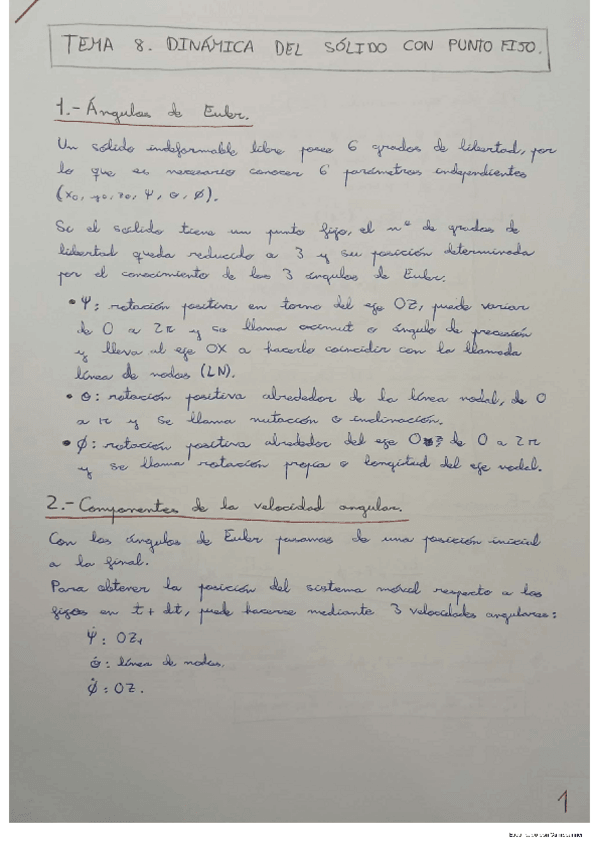 TEMA 8. DINÁMICA DEL SÓLIDO CON PUNTO FIJO.
1.- Ángulos de Euler.
Un sólido indeformable libre posee 6 grados de libertad, por
lo que es necesario conocer 6 parámetros independientes
(x₀, y₀, z₀, Ψ, Θ, Ø).
Si el sólido tiene un punto fijo, el nº de grados de
libertad queda reducido a 3 y su posición determinada
por el conocimiento de los 3 ángulos de Euler.
• Ψ: rotación positiva en torno del eje OZ₁ puede variar
de 0 a 2π y se llama acimut o ángulo de precesión
y lleva al eje OX a hacerlo coincidir con la llamada
línea de nodos (LN).
• Θ: rotación positiva alrededor de la línea nodal, de 0
a π y se llama nutación o inclinación.
• Ø: rotación positiva alrededor del eje OZ de 0 a 2π
y se llama rotación propia o longitud del eje nodal.
2.- Componentes de la velocidad angular.
Con los ángulos de Euler pasamos de una posición inicial
a la final.
Para obtener la posición del sistema móvil respecto a los
fijos en t + dt, puede hacerse mediante 3 velocidades angulares:
Ψ̇: OZ₁
Θ̇: línea de nodos.
Ø̇: OZ.
1